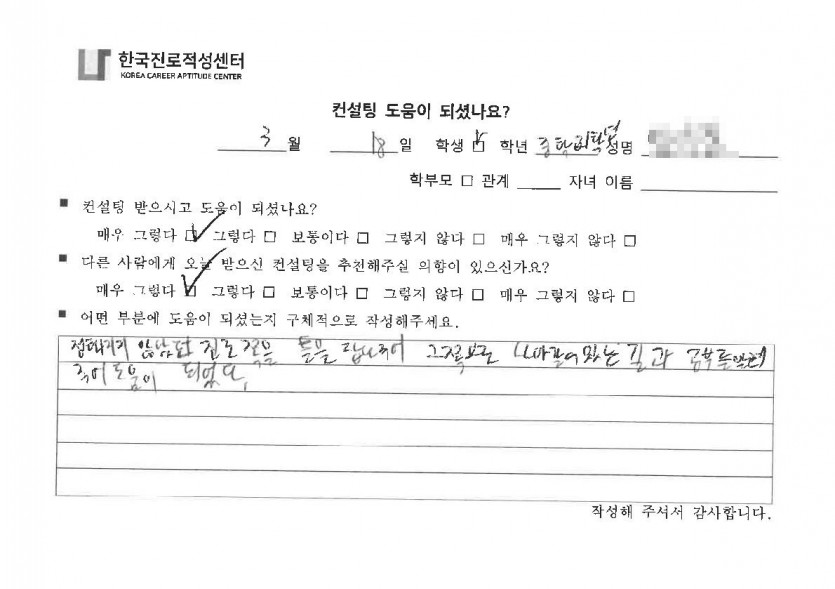 한국진로적성센터
KOREA CAREER APTITUDE CENTER
컨설팅 도움이 되셨나요?
3 월 18 일 학생 ☑ 학년 성명
학부모 □ 관계 자녀 이름
■ 컨설팅 받으시고 도움이 되셨나요?
매우 그렇다 ☑ 그렇다 □ 보통이다 □ 그렇지 않다 □ 매우 그렇지 않다 □
■ 다른 사람에게 오늘 받으신 컨설팅을 추천해주실 의향이 있으신가요?
매우 그렇다 ☑ 그렇다 □ 보통이다 □ 그렇지 않다 □ 매우 그렇지 않다 □
■ 어떤 부분에 도움이 되셨는지 구체적으로 작성해주세요.
정해지지 않았던 진로 쪽을 틀을 잡아주어 그쪽으로 나아갈 수 있는 길과 공부를 알려
주어 도움이 되었다.
작성해 주셔서 감사합니다.